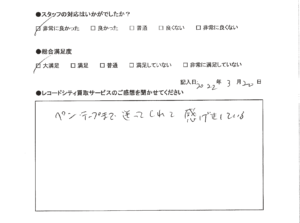 ●スタッフの対応はいかがでしたか？
□非常に良かった □良かった □普通 □良くない □非常に良くない
●総合満足度
□大満足 □満足 □普通 □満足していない □非常に満足していない
記入日 2022年 3月20日
●レコードシティ買取サービスのご感想を聞かせてください
ペン テープまで 送ってくれて 感げきしている